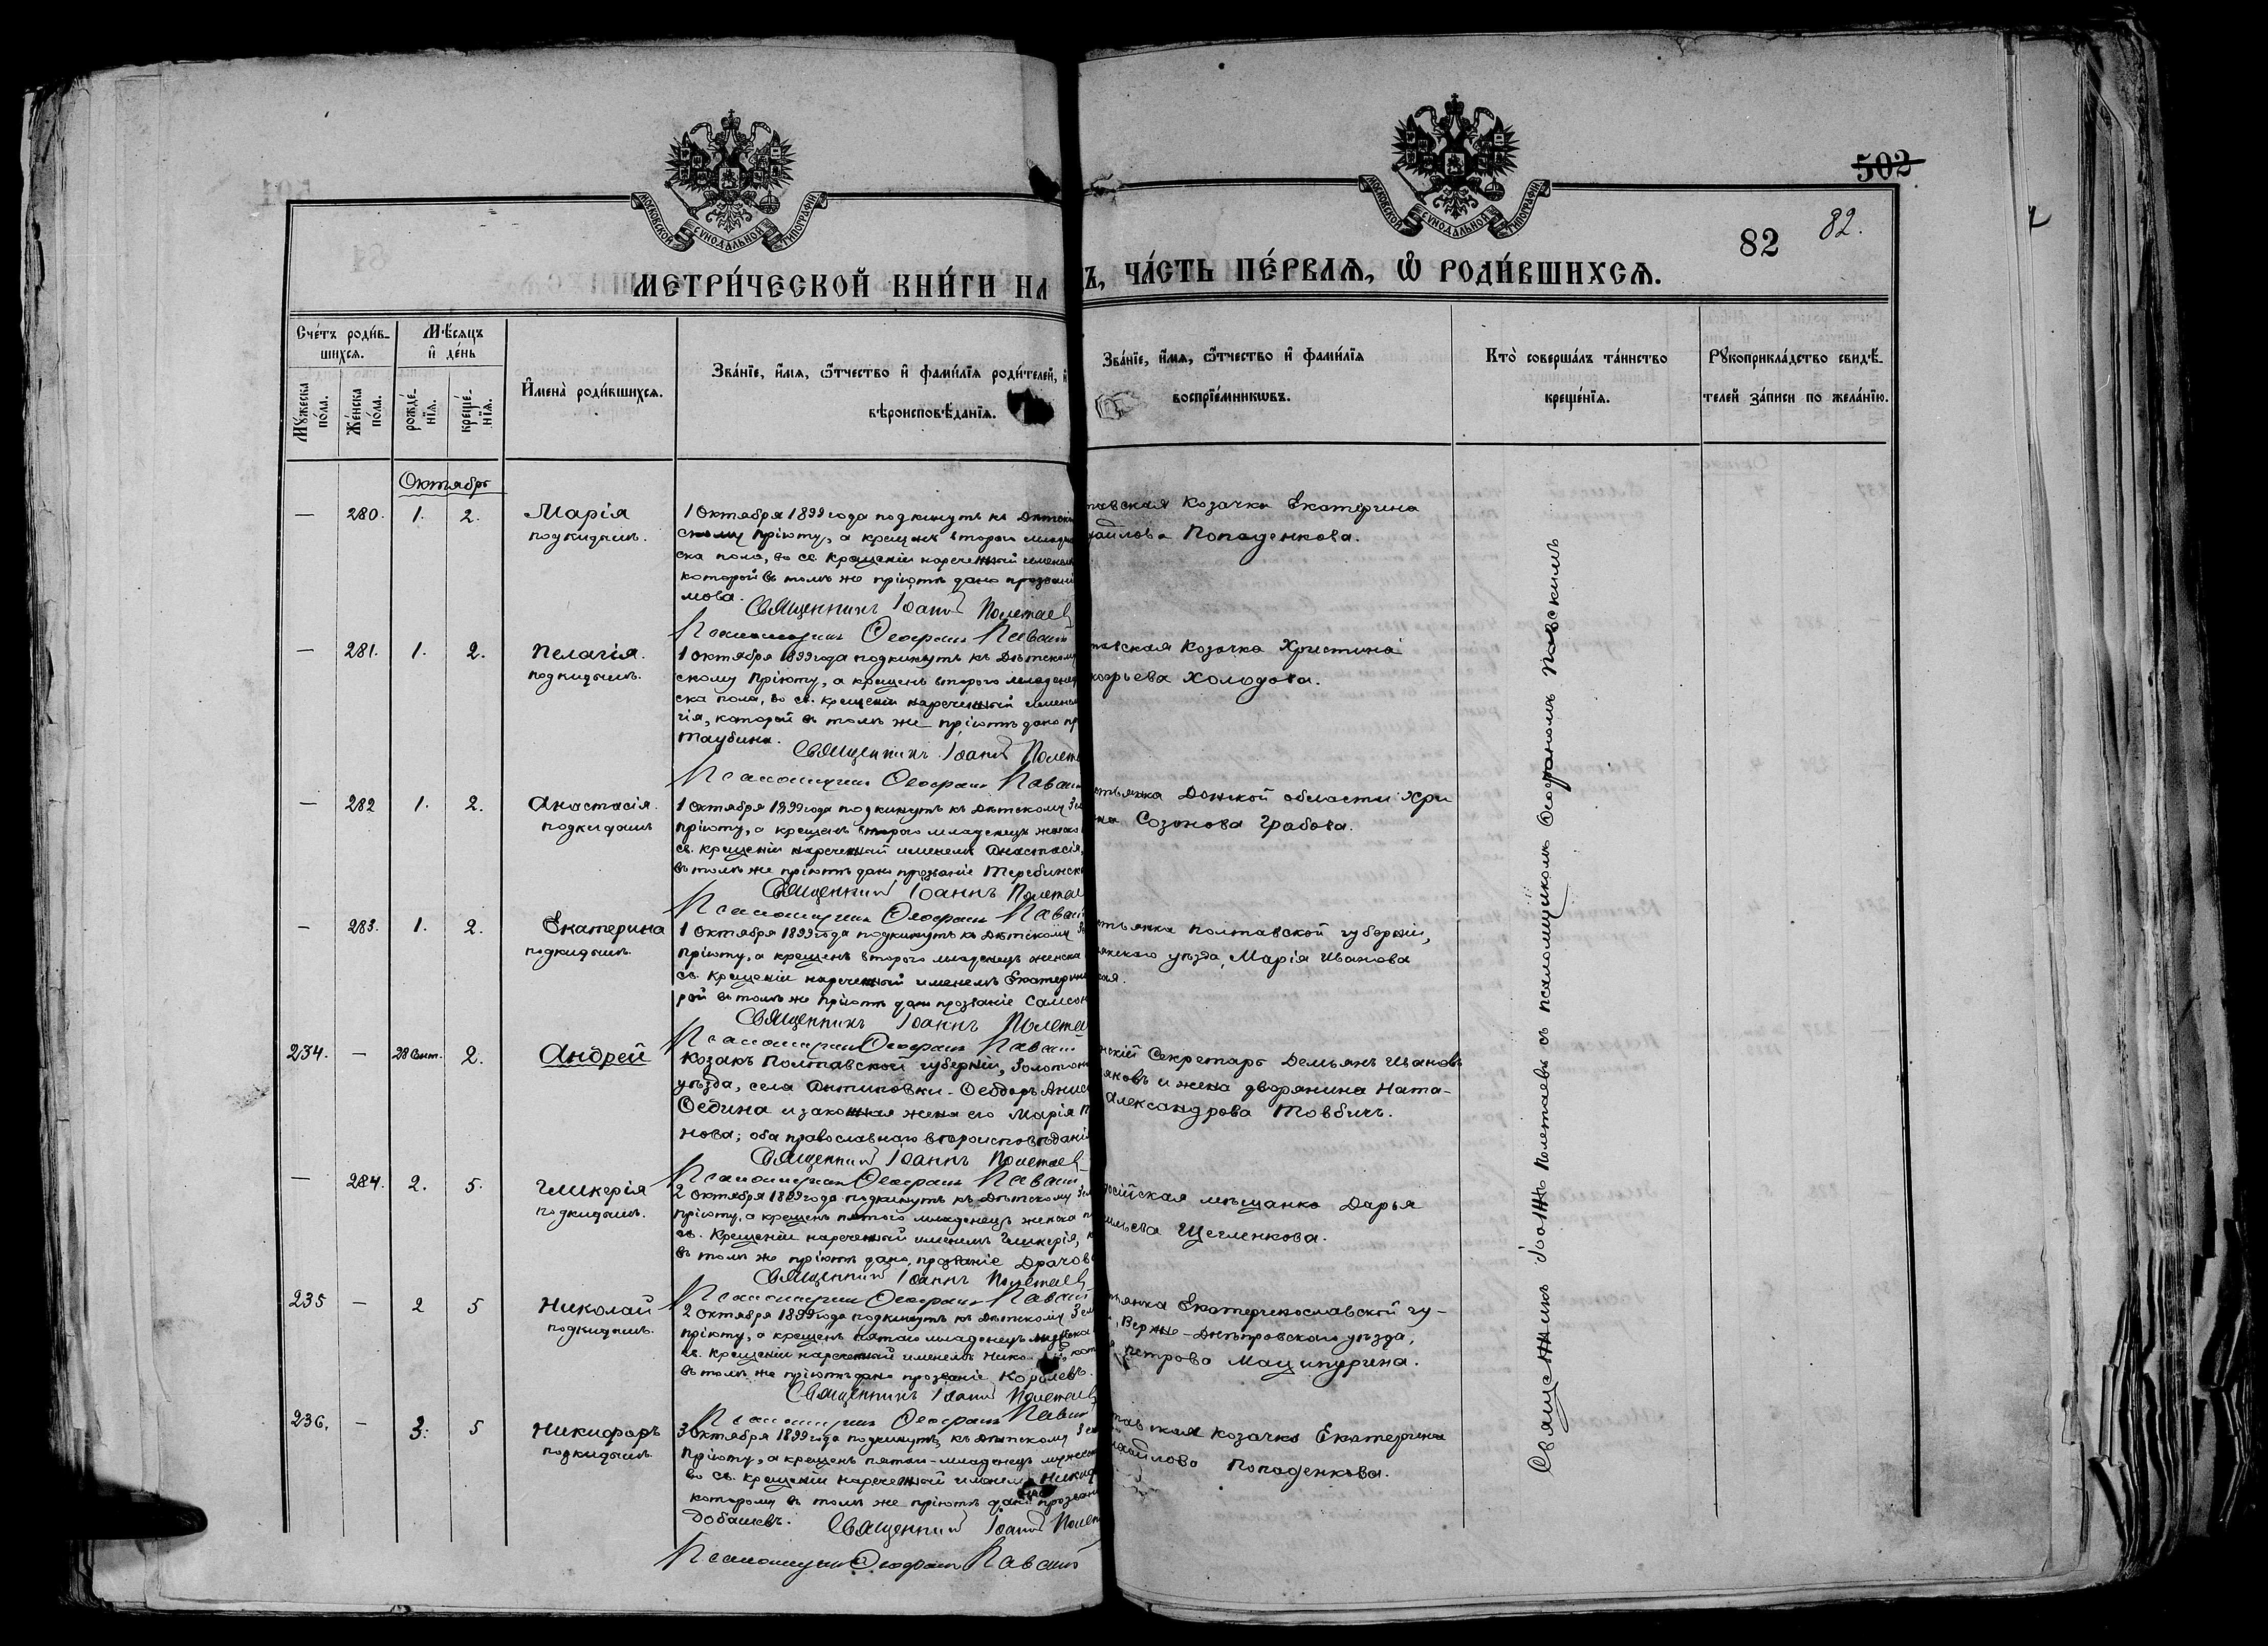 МОСКОВСКОЙ СУНОДАЛЬНОЙ ТИПОГРАФІИ
МОСКОВСКОЙ СУНОДАЛЬНОЙ ТИПОГРАФІИ
502
82 82.
МЕТРИ́ЧЕСКОЙ КНИ́ГИ НА
Ъ, ЧА́СТЬ ПЕ́РВАѦ, Ѡ҆ РОДИ́ВШИХСѦ.
Сче́тъ роди́в-
шихсѧ.
Мꙋ́жеска по́ла.
Же́нска по́ла.
Мѣ́сѧцъ
и҆ де́нь
рожде́-нїѧ.
креще́-нїѧ.
И҆мена̀ роди́вшихсѧ.
Зва́нїе, и҆́мѧ, ѻ҆́тчество и҆ фами́лїѧ роди́телей, и҆
вѣроисповѣ́данїѧ.
Зва́нїе, и҆́мѧ, ѻ҆́тчество и҆ фами́лїѧ
воспрїе́мникѡвъ.
Кто̀ соверша́лъ та́инство
креще́нїѧ.
Рꙋкоприкла́дство свидѣ́-
телей за́писи по жела́нїю.
Октябрь
— 280. 1. 2. Марія
подкидышъ.
1 Октября 1899 года подкинутъ къ Дѣтск
скому пріюту, а крещенъ второго младе
ска пола, во св. крещеніи нареченный именем
которой въ томъ же пріютѣ дано прозвані
мова.
Священникъ Іоаннъ Полетаев
Псаломщикъ Ѳеофанъ Павл
тавская козачка Екатерина
хайлова Попаденкова.
— 281. 1. 2. Пелагія.
подкидышъ.
1 Октября 1899 года подкинутъ къ Дѣтскому
скому пріюту, а крещенъ второго младенец
ска пола, во св. крещеніи нареченный именем
гія, которой въ томъ же пріютѣ дано пр
Таубина.
Священникъ Іоаннъ Полет
Псаломщикъ Ѳеофанъ
тавская козачка Христина
Холодова.
— 282 1. 2. Анастасія.
подкидышъ
1 Октября 1899 года подкинутъ къ Дѣтскому Зем
пріюту, а крещенъ второго младенецъ женско
св. крещеніи нареченный именемъ Анастасія,
въ томъ же пріютѣ дано прозваніе Теребинск
Священникъ Іоаннъ Полетае
Псаломщикъ Ѳеофанъ
стьянка Донской области Хри
на Созонова Грабова.
— 283. 1. 2. Екатерина
подкидышъ.
1 Октября 1899 года подкинутъ къ Дѣтскому Зе
пріюту, а крещенъ второго младенецъ женска
св. крещеніи нареченный именемъ Екатерин
рой въ томъ же пріютѣ дано прозваніе Самсон
Священникъ Іоаннъ Полета
Псаломщикъ Ѳеофанъ
стьянка Полтавской губерніи,
уѣзда, Марія Иванова
кая.
234. — 28 Сент. 2. Андрей
Козакъ Полтавской губерніи, Золотон
уѣзда, села Антиповки - Ѳеодоръ Аниси
Оедина и законная жена его Марія П
нова; оба православнаго вѣроисповѣдані
Священникъ Іоаннъ Полетаев
Псаломщикъ Ѳеофанъ
нскій Секретарь Демьянъ Ивановъ
яновъ и жена дворянина Ната-
Александрова Товбичъ.
— 284. 2. 5. Гликерія
подкидышъ.
2 Октября 1899 года подкинутъ къ Дѣтскому Зем
пріюту, а крещенъ пятого младенецъ женска п
св. крещеніи нареченный именемъ Гликерія, к
въ томъ же пріютѣ дано прозваніе Драчов
Священникъ Іоаннъ Полетаев
Псаломщикъ Ѳеофанъ
мѣщанка Дарья
ильева Щегленкова.
235 — 2 5 Николай
подкидышъ.
2 Октября 1899 года подкинутъ къ Дѣтскому Зем
пріюту, а крещенъ пятаго младенецъ мужска
св. крещеніи нареченный именемъ Нико й, кот
въ томъ же пріютѣ дано прозваніе Королевъ.
Священникъ Іоаннъ Полетаев
Псаломщикъ Ѳеофанъ
тьянка Екатеринославской гу-
, Верхне-Днѣпровскаго уѣзда,
Петрова Маципурина.
236. — 3. 5 Никифоръ
подкидышъ.
3 Октября 1899 года подкинутъ къ Дѣтскому Зем
пріюту, а крещенъ пятаго-младенецъ мужеск
во св. крещеніи нареченный именемъ Никиф
которому въ томъ же пріютѣ дано прозвані
Добашевъ.
Священникъ Іоаннъ Полет
Псаломщикъ Ѳеофанъ
тавская козачка Екатерина
хайлова Попаденкова.
Священникъ Іоаннъ Полетаевъ съ псаломщикомъ Ѳеофаномъ